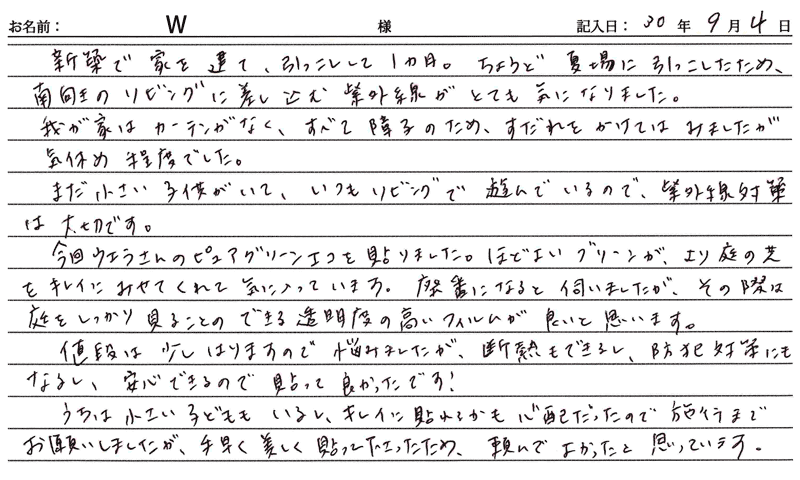 お名前： W 様 記入日： 30 年 9 月 4 日
新築で家を建て、引っこしして1カ月。ちょうど夏場に引っこしたため、
南向きのリビングに差し込む紫外線がとても気になりました。
我が家はカーテンがなく、すべて障子のため、すだれをかけてはみましたが
気休め程度でした。
まだ小さい子供がいて、いつもリビングで遊んでいるので、紫外線対策
は大切です。
今回ウエラさんのピュアグリーンエコを貼りました。ほどよいグリーンが、より庭の芝
をキレイにみせてくれて気に入っています。廃番になると伺いましたが、その際は
庭をしっかり見ることのできる透明度の高いフィルムが良いと思います。
値段は少しはりますので悩みましたが、断熱もできるし、防犯対策にも
なるし、安心できるので貼って良かったです！
うちは小さい子どももいるし、キレイに貼れるかも心配だったので施行まで
お願いしましたが、手早く美しく貼って下さったため、頼んでよかったと思っています。